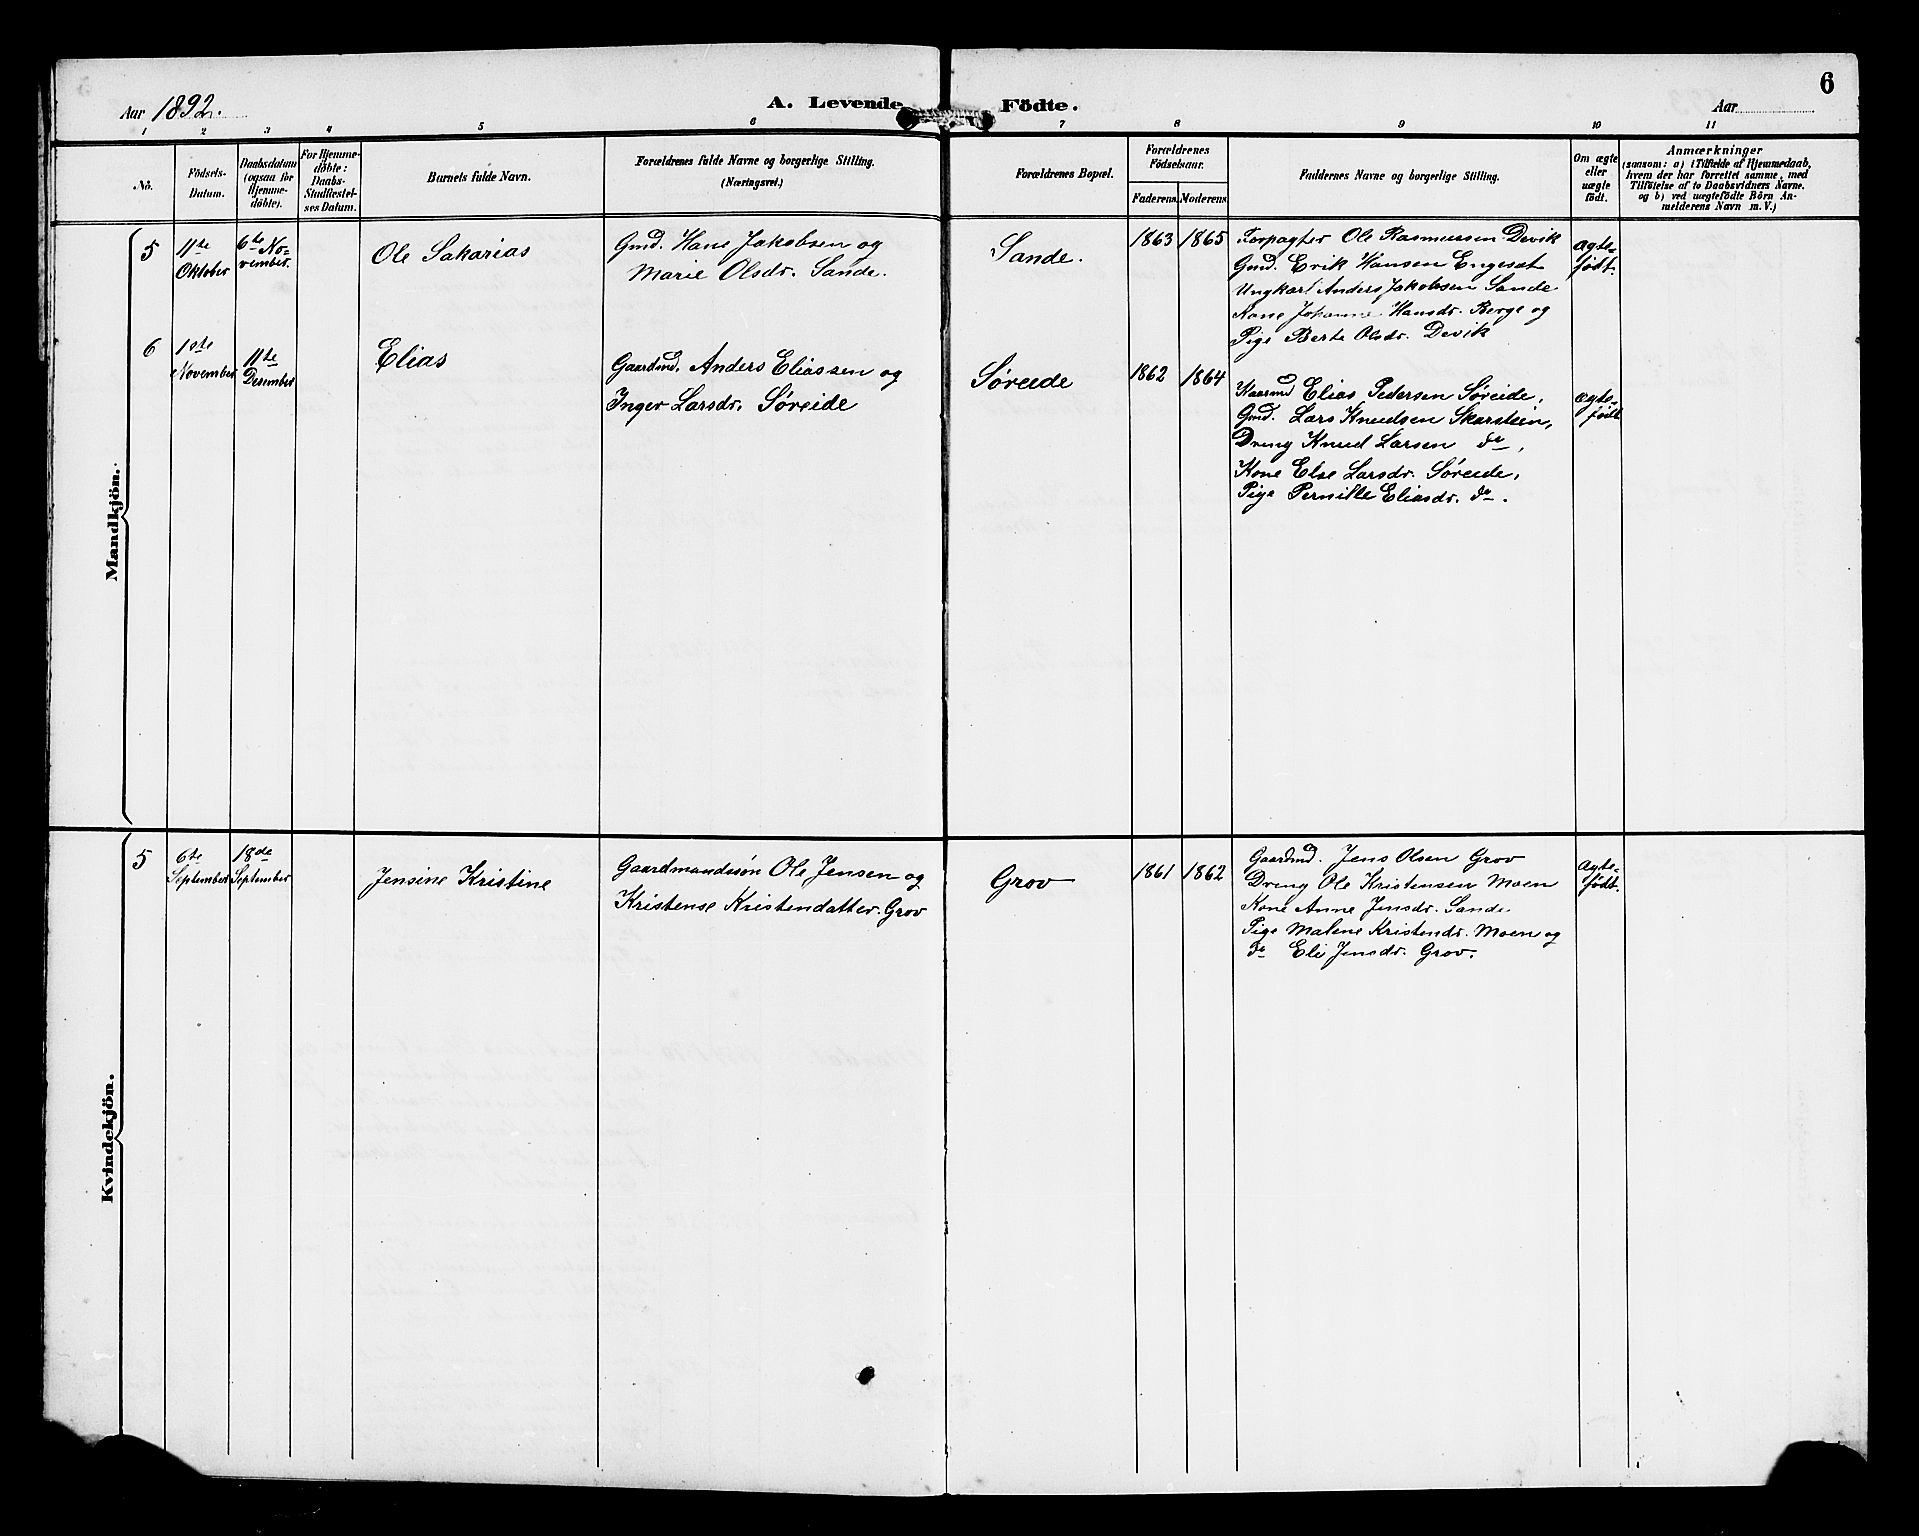 6
Aar 1892.
A. Levende Födte.
Aar
1 2 3 4 5 6 7 8 9 10 11
No.
Födsels-
Datum.
Daabsdatum
(ogsaa for
Hjemme-
döbte).
For Hjemme-
döbte:
Daabs-
Stadfæstel-
ses Datum.
Barnets fulde Navn.
Forældrenes fulde Navne og borgerlige Stilling.
(Næringsvei.)
Forældrenes Bopæl.
Forældrenes
Födselsaar.
Faderens. Moderens.
Faddernes Navne og borgerlige Stilling.
Om ægte
eller
uægte
födt.
Anmærkninger
(saasom: a) i Tilfælde af Hjemmedaab,
hvem der har forrettet samme, med
Tilföielse af to Daabsvidners Navne.
og b) ved uægtefödte Börn An-
melderens Navn m. V.)
Mandkjön.
5
11te
Oktober
6te No-
vember.
Ole Sakarias
Gmd. Hans Jakobsen og
Marie Olsdr. Sande.
Sande.
1863 1865
Forpagter Ole Rasmussen Devik
Gmd. Erik Hansen Engeset
Ungkarl Anders Jakobsen Sande
Kone Johanne Hansdr. Berge og
Pige Berte Olsdr. Devik
Ægte-
født.
6
1ste
November
11te
Desember
Elias
Gaardmd. Anders Eliassen og
Inger Larsdr. Søreide
Søreide
1862 1864
Kaarmd Elias Pedersen Søreide,
Gmd. Lars Knudsen Skarstein,
Dreng Knud Larsen do,
Kone Else Larsdr. Søreide,
Pige Pernille Eliasdr. do.
Ægte-
født
Kvindekjön.
5
6te
September
18de
September
Jensine Kristine
Gaardmandssøn Ole Jensen og
Kristense Kristendatter Grov
Grov
1861 1862
Gaardmd. Jens Olsen Grov
Dreng Ole Kristensen Moen
Kone Anne Jensdr. Sande
Pige Malene Kristendr. Moen og
do Eli Jensdr. Grov.
Ægte-
født.